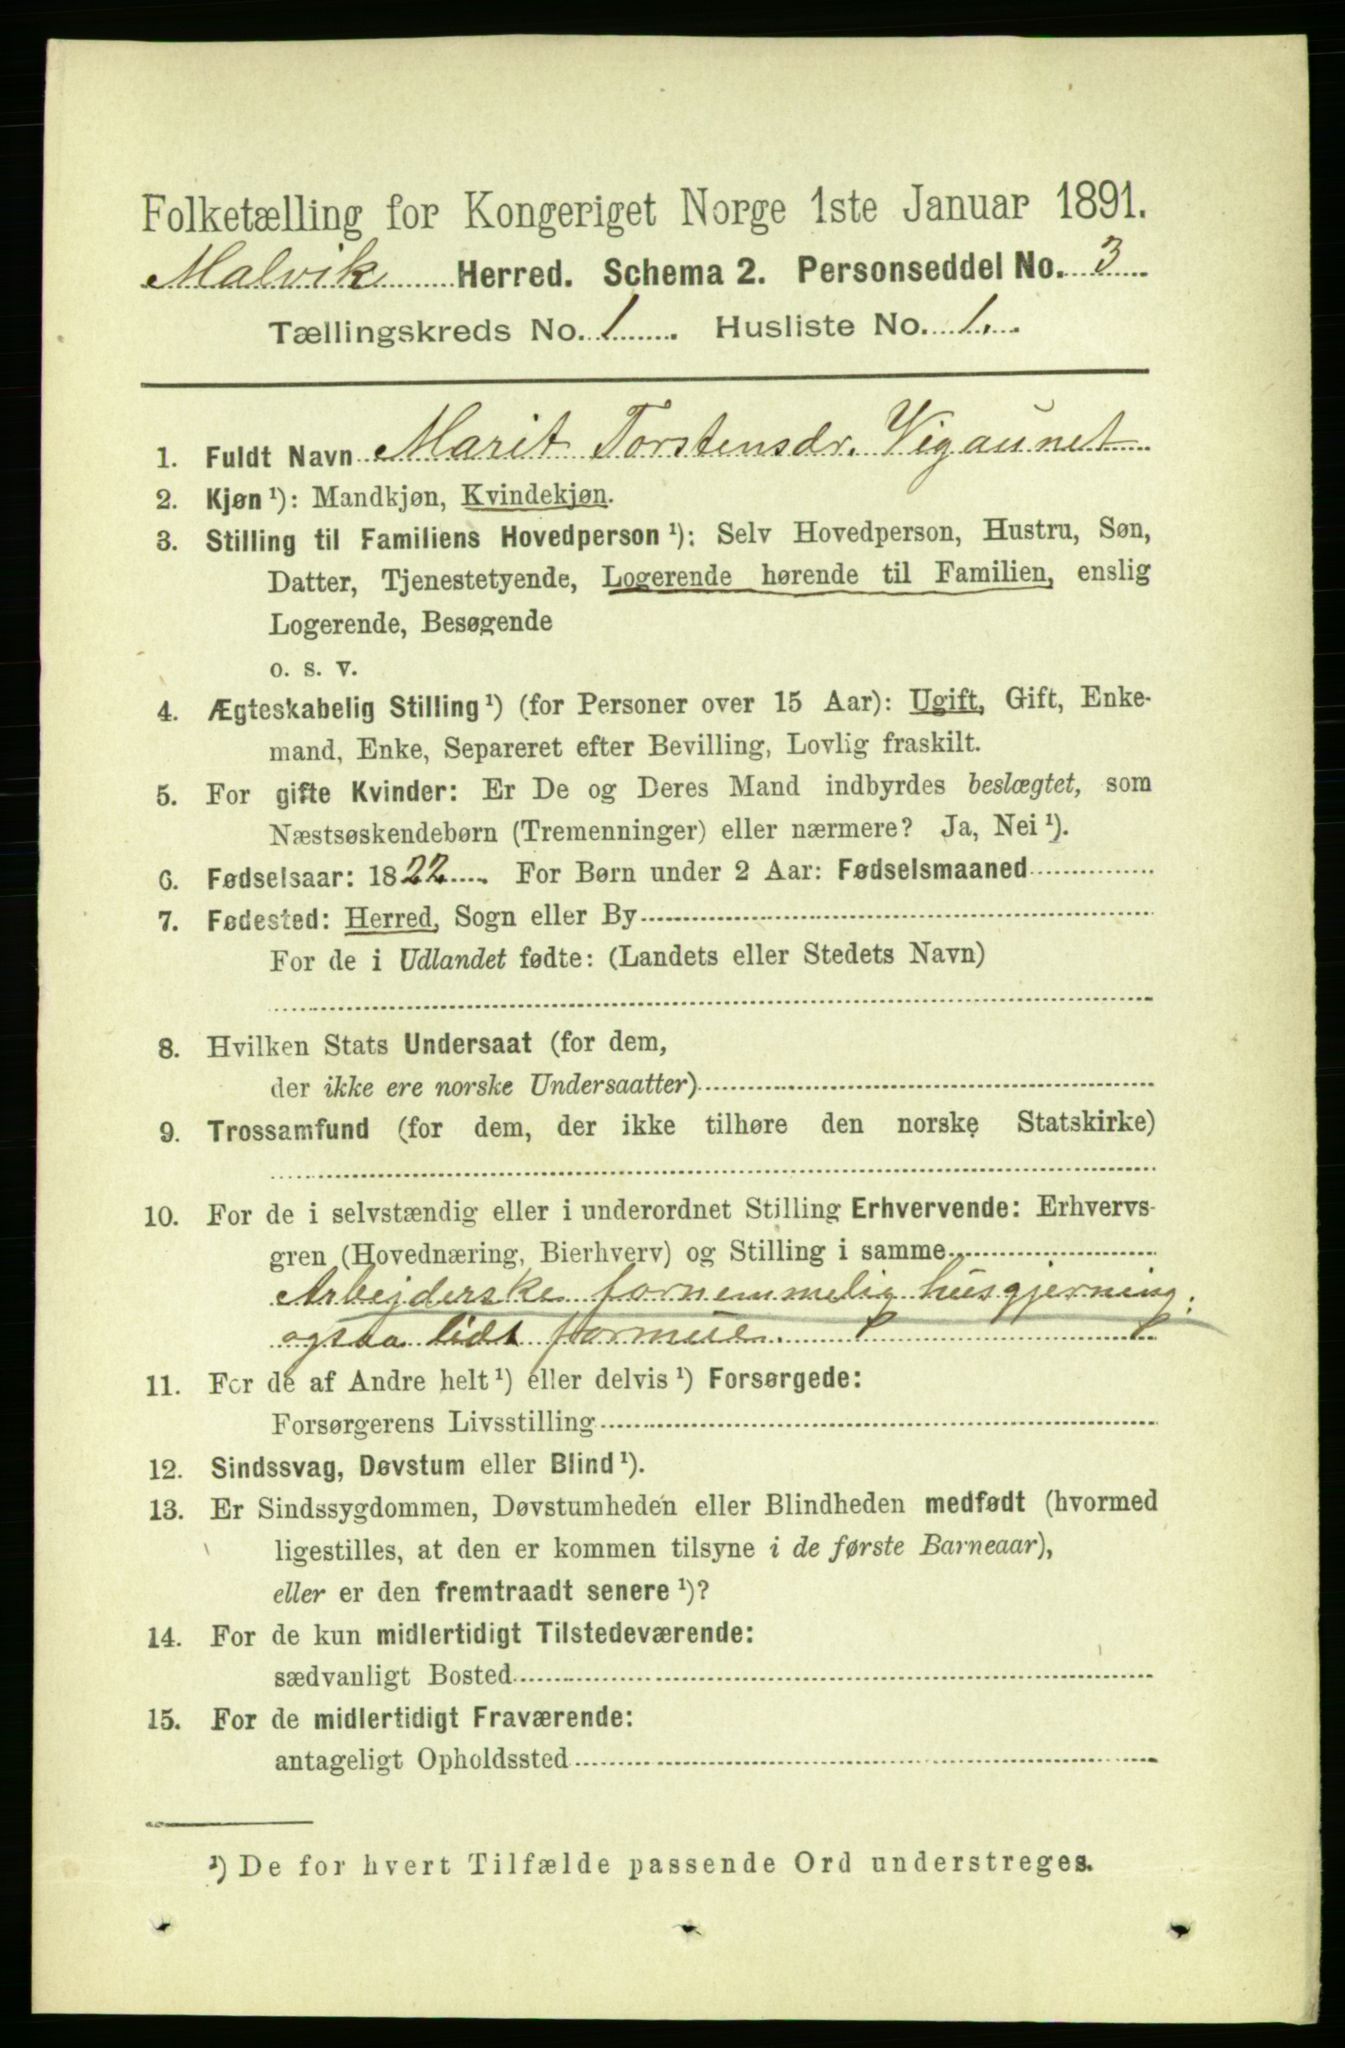 Folketælling for Kongeriget Norge 1ste Januar 1891.
Malvik Herred. Schema 2. Personseddel No. 3
Tællingskreds No. 1. Husliste No. 1.
1. Fuldt Navn Marit Torstensdr. Vigaunet
2. Kjøn¹): Mandkjøn, Kvindekjøn.
3. Stilling til Familiens Hovedperson¹): Selv Hovedperson, Hustru, Søn,
Datter, Tjenestetyende, Logerende hørende til Familien, enslig
Logerende, Besøgende
o. s. v.
4. Ægteskabelig Stilling¹) (for Personer over 15 Aar): Ugift, Gift, Enke-
mand, Enke, Separeret efter Bevilling, Lovlig fraskilt.
5. For gifte Kvinder: Er De og Deres Mand indbyrdes beslægtet, som
Næstsøskendebørn (Tremenninger) eller nærmere? Ja, Nei¹).
6. Fødselsaar: 1822. For Børn under 2 Aar: Fødselsmaaned
7. Fødested: Herred, Sogn eller By
For de i Udlandet fødte: (Landets eller Stedets Navn)
8. Hvilken Stats Undersaat (for dem,
der ikke ere norske Undersaatter)
9. Trossamfund (for dem, der ikke tilhøre den norske Statskirke)
10. For de i selvstændig eller i underordnet Stilling Erhvervende: Erhvervs-
gren (Hovednæring, Bierhverv) og Stilling i samme
Arbejderske fornemmelig husgjerning;
ogsaa lidt formue.
11. For de af Andre helt¹) eller delvis¹) Forsørgede:
Forsørgerens Livsstilling
12. Sindssvag, Døvstum eller Blind¹).
13. Er Sindssygdommen, Døvstumheden eller Blindheden medfødt (hvormed
ligestilles, at den er kommen tilsyne i de første Barneaar),
eller er den fremtraadt senere¹)?
14. For de kun midlertidigt Tilstedeværende:
sædvanligt Bosted
15. For de midlertidigt Fraværende:
antageligt Opholdssted
¹) De for hvert Tilfælde passende Ord understreges.